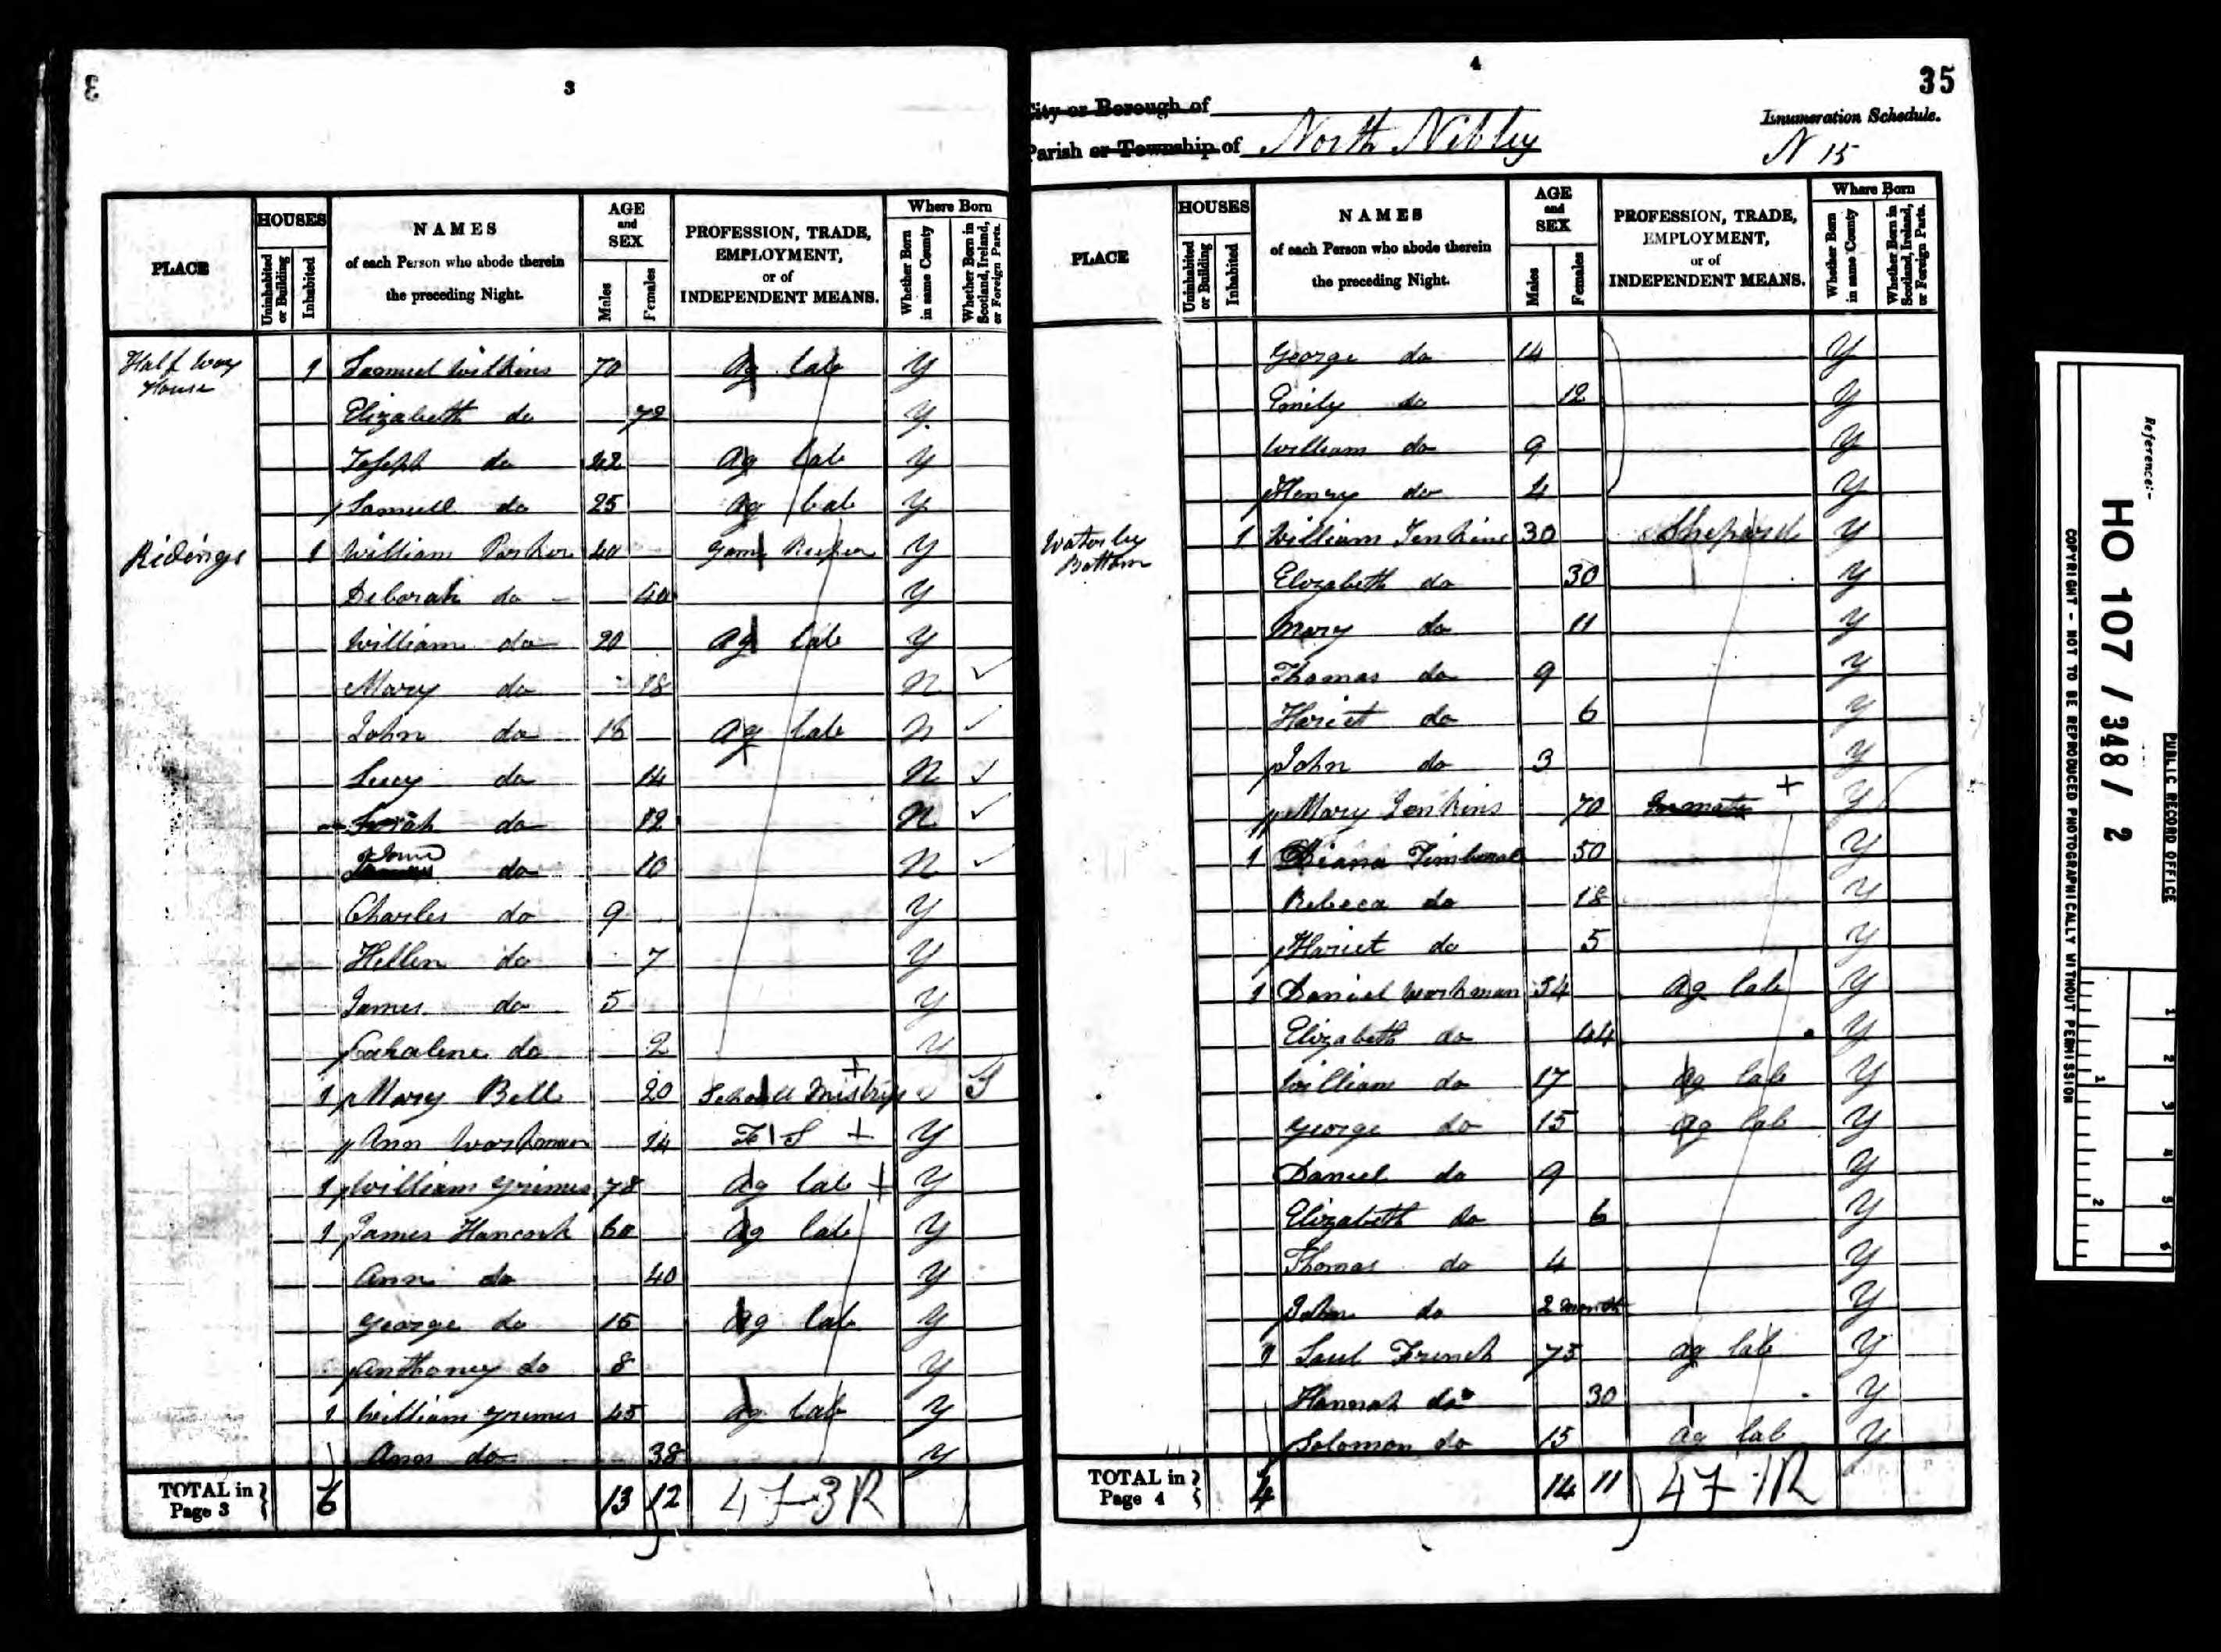 3
3
PLACE
HOUSES
Uninhabited or Building
Inhabited
NAMES
of each Person who abode therein
the preceding Night.
AGE
and
SEX
Males
Females
PROFESSION, TRADE,
EMPLOYMENT,
or of
INDEPENDENT MEANS.
Where Born
Whether Born in same County
Whether Born in Scotland, Ireland, or Foreign Parts.
Half Way House 1 Samuel Wilkins 70 Ag lab Y
Elizabeth do 72 Y
Joseph do 22 Ag lab Y
Samuell do 25 Ag lab Y
Ridings 1 William Parker 40 Game Keeper Y
Deborah do 40 Y
William do 20 Ag lab Y
Mary do 18 N
John do 16 Ag lab N
Lucy do 14 N
Sarah do 12 N
do 10 N
Charles do 9 Y
Hellen do 7 Y
James do 5 Y
do 2 Y
1 Mary Bell 20 Y
Ann Workman 14 F S Y
1 William Grimes 78 Ag lab Y
1 James Hancock 60 Ag lab Y
Ann do 40 Y
George do 15 Ag lab Y
Anthoney do 8 Y
1 William Grimes 45 Ag lab Y
Ann do 38 Y
TOTAL in Page 3 6 13 12 47-3R
4
35
City or Borough of
Enumeration Schedule.
Parish or Township of North Nibley
N 15
PLACE
HOUSES
Uninhabited or Building
Inhabited
NAMES
of each Person who abode therein
the preceding Night.
AGE
and
SEX
Males
Females
PROFESSION, TRADE,
EMPLOYMENT,
or of
INDEPENDENT MEANS.
Where Born
Whether Born in same County
Whether Born in Scotland, Ireland, or Foreign Parts.
George do 14 Y
Emily do 12 Y
William do 9 Y
Henry do 4 Y
Waterley Bottom 1 William Jenkins 30 Shepard Y
Elizabeth do 30 Y
Mary do 11 Y
Thomas do 9 Y
Hariet do 6 Y
John do 3 Y
Mary Jenkins 70 Inmate Y
1 Diana 50 Y
Rebeca do 18 Y
Hariet do 5 Y
1 Daniel Workman 54 Ag lab Y
Elizabeth do 44 Y
William do 17 Ag lab Y
George do 15 Ag lab Y
Daniel do 9 Y
Elizabeth do 6 Y
Thomas do 4 Y
John do 2 month Y
1 Saul French 75 Ag lab Y
Hannah do 30 Y
Solomon do 15 Ag lab Y
TOTAL in Page 4 4 14 11 47-1R
Reference:-
HO 107 / 348 / 2
PUBLIC RECORD OFFICE
COPYRIGHT - NOT TO BE REPRODUCED PHOTOGRAPHICALLY WITHOUT PERMISSION
1
2
1
2
3
4
5
6